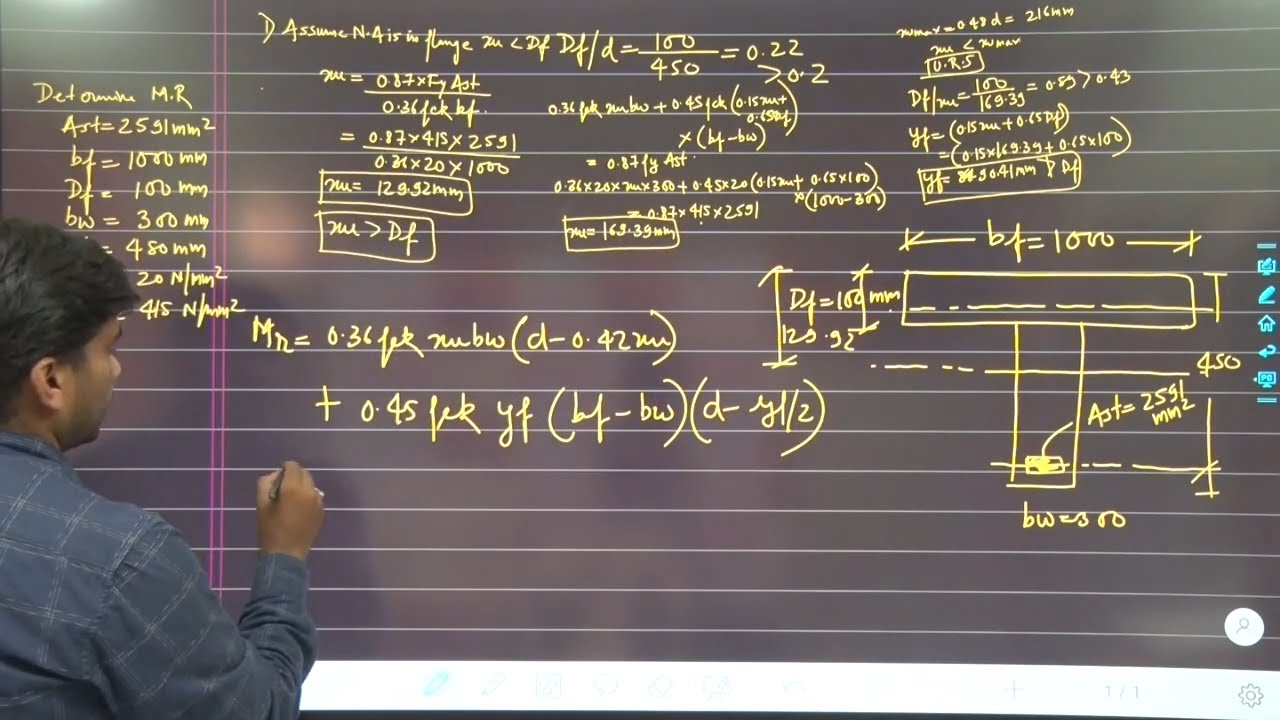 Determine M.R
Ast = 2591 mm²
bf = 1000 mm
Df = 100 mm
bw = 300 mm
= 450 mm
20 N/mm²
415 N/mm²
1) Assume N.A is in flange xu < Df
xu = 0.87×Fy Ast / 0.36fck bf.
= 0.87×415×2591 / 0.36×20×1000
xu = 129.92mm
xu > Df
Df/d = 100/450 = 0.22
> 0.2
0.36fck xu bw + 0.45fck (0.15xu + 0.65Df)
× (bf-bw)
= 0.87fy Ast.
0.36×20×xu×300 + 0.45×20 (0.15xu + 0.65×100)
×(1000-300)
= 0.87×415×2591
xu = 169.39mm
xumax = 0.48d = 216mm
xu < xumax
U.R.S
Df/xu = 100/169.39 = 0.59 > 0.43
yf = (0.15xu + 0.65Df)
= (0.15×169.39 + 0.65×100)
yf = 90.41mm Df
Mr = 0.36 fck xu bw (d - 0.42xu)
+ 0.45 fck yf (bf - bw)(d - yf/2)
bf = 1000
Df = 100 mm
129.92
450
Ast = 2591
mm²
bw = 300
1/1